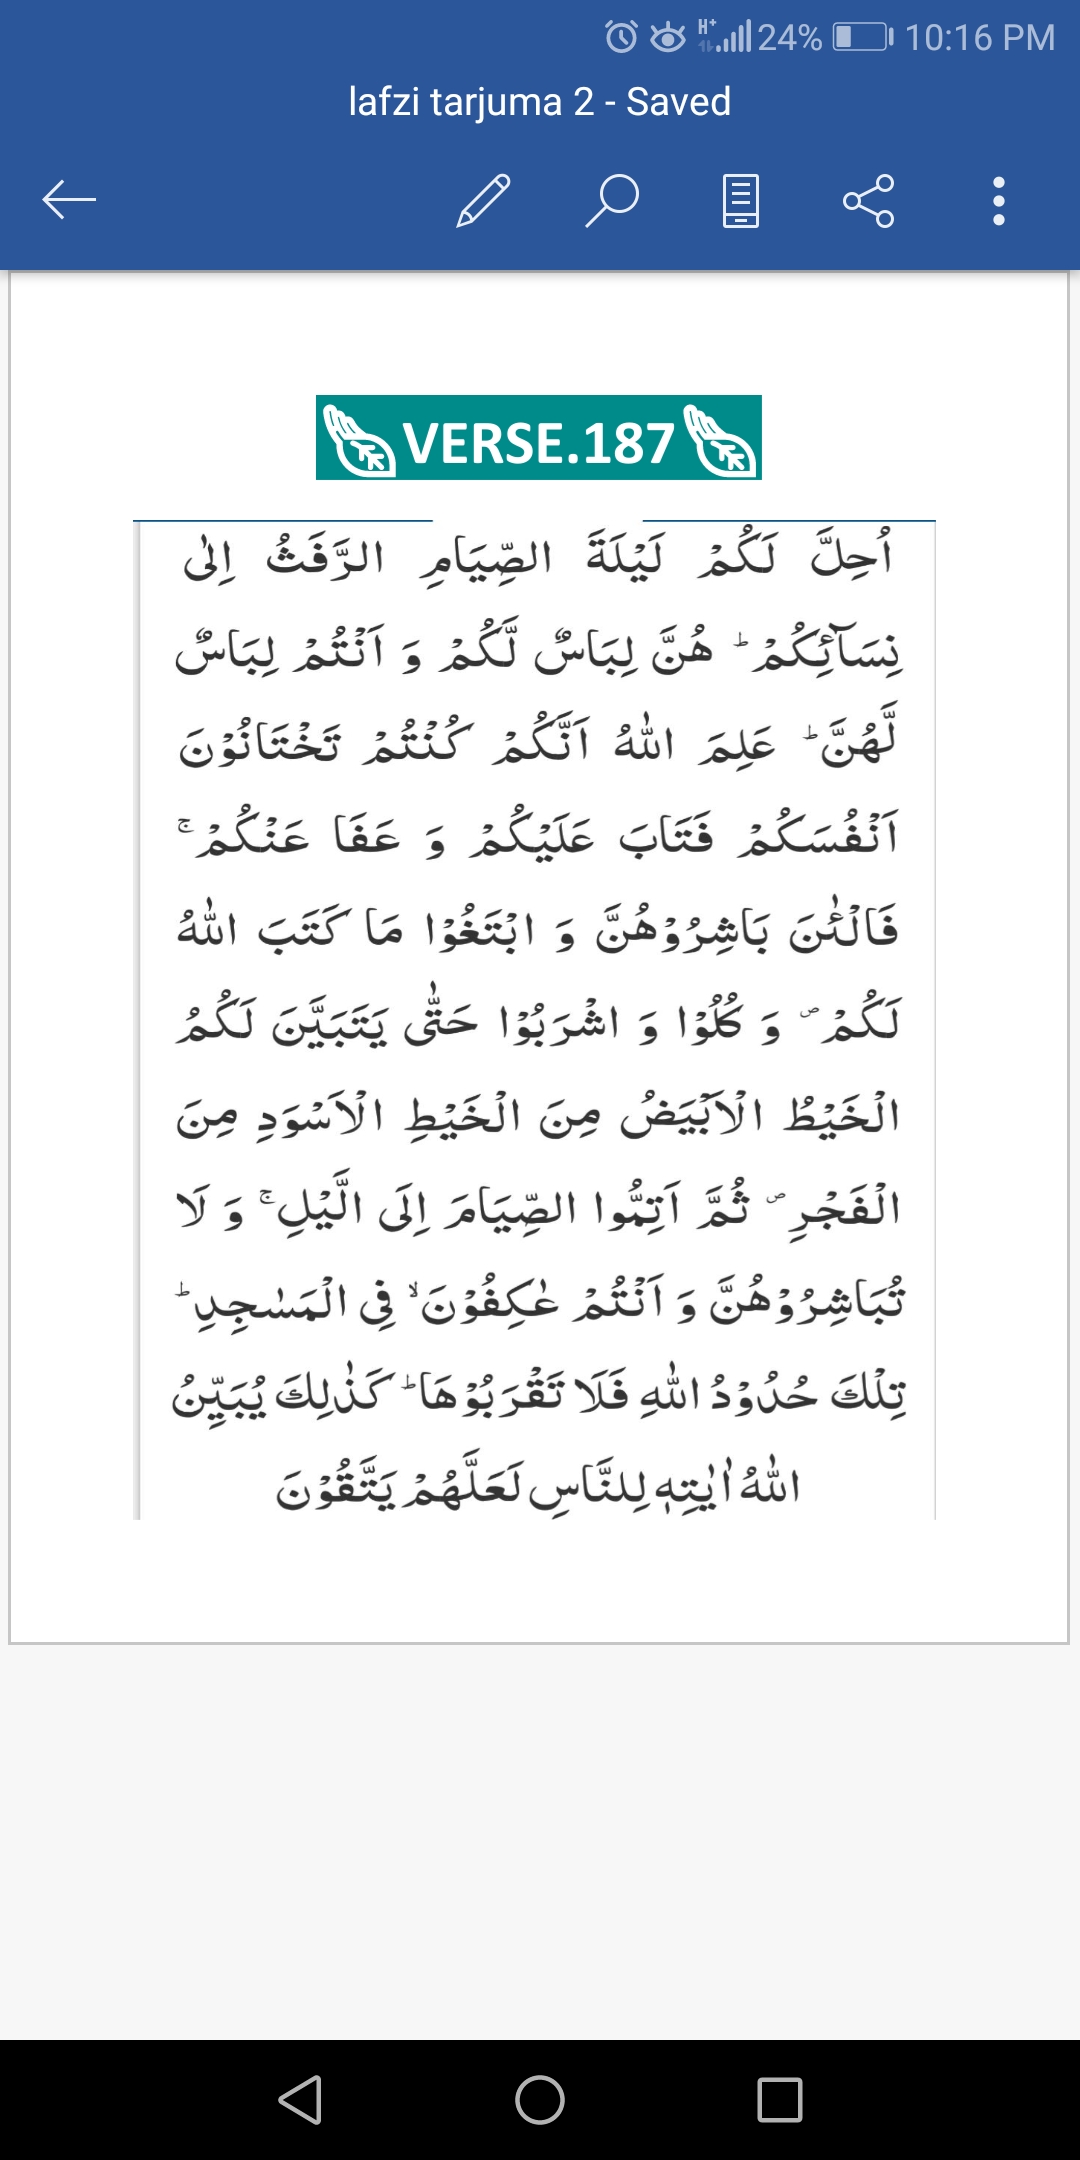 24% 10:16 PM
lafzi tarjuma 2 - Saved
VERSE.187
اُحِلَّ لَكُمْ لَيْلَةَ الصِّيَامِ الرَّفَثُ اِلٰى
نِسَآئِكُمْ ؕ هُنَّ لِبَاسٌ لَّكُمْ وَ اَنْتُمْ لِبَاسٌ
لَّهُنَّ ؕ عَلِمَ اللّٰهُ اَنَّكُمْ كُنْتُمْ تَخْتَانُوْنَ
اَنْفُسَكُمْ فَتَابَ عَلَيْكُمْ وَ عَفَا عَنْكُمْ ۚ
فَالْـٰٔنَ بَاشِرُوْهُنَّ وَ ابْتَغُوْا مَا كَتَبَ اللّٰهُ
لَكُمْ ۪ وَ كُلُوْا وَ اشْرَبُوْا حَتّٰى يَتَبَيَّنَ لَكُمُ
الْخَيْطُ الْاَبْيَضُ مِنَ الْخَيْطِ الْاَسْوَدِ مِنَ
الْفَجْرِ ۪ ثُمَّ اَتِمُّوا الصِّيَامَ اِلَى الَّيْلِ ۚ وَ لَا
تُبَاشِرُوْهُنَّ وَ اَنْتُمْ عٰكِفُوْنَ ۙ فِى الْمَسٰجِدِ ؕ
تِلْكَ حُدُوْدُ اللّٰهِ فَلَا تَقْرَبُوْهَا ؕ كَذٰلِكَ يُبَيِّنُ
اللّٰهُ اٰيٰتِهٖ لِلنَّاسِ لَعَلَّهُمْ يَتَّقُوْنَ